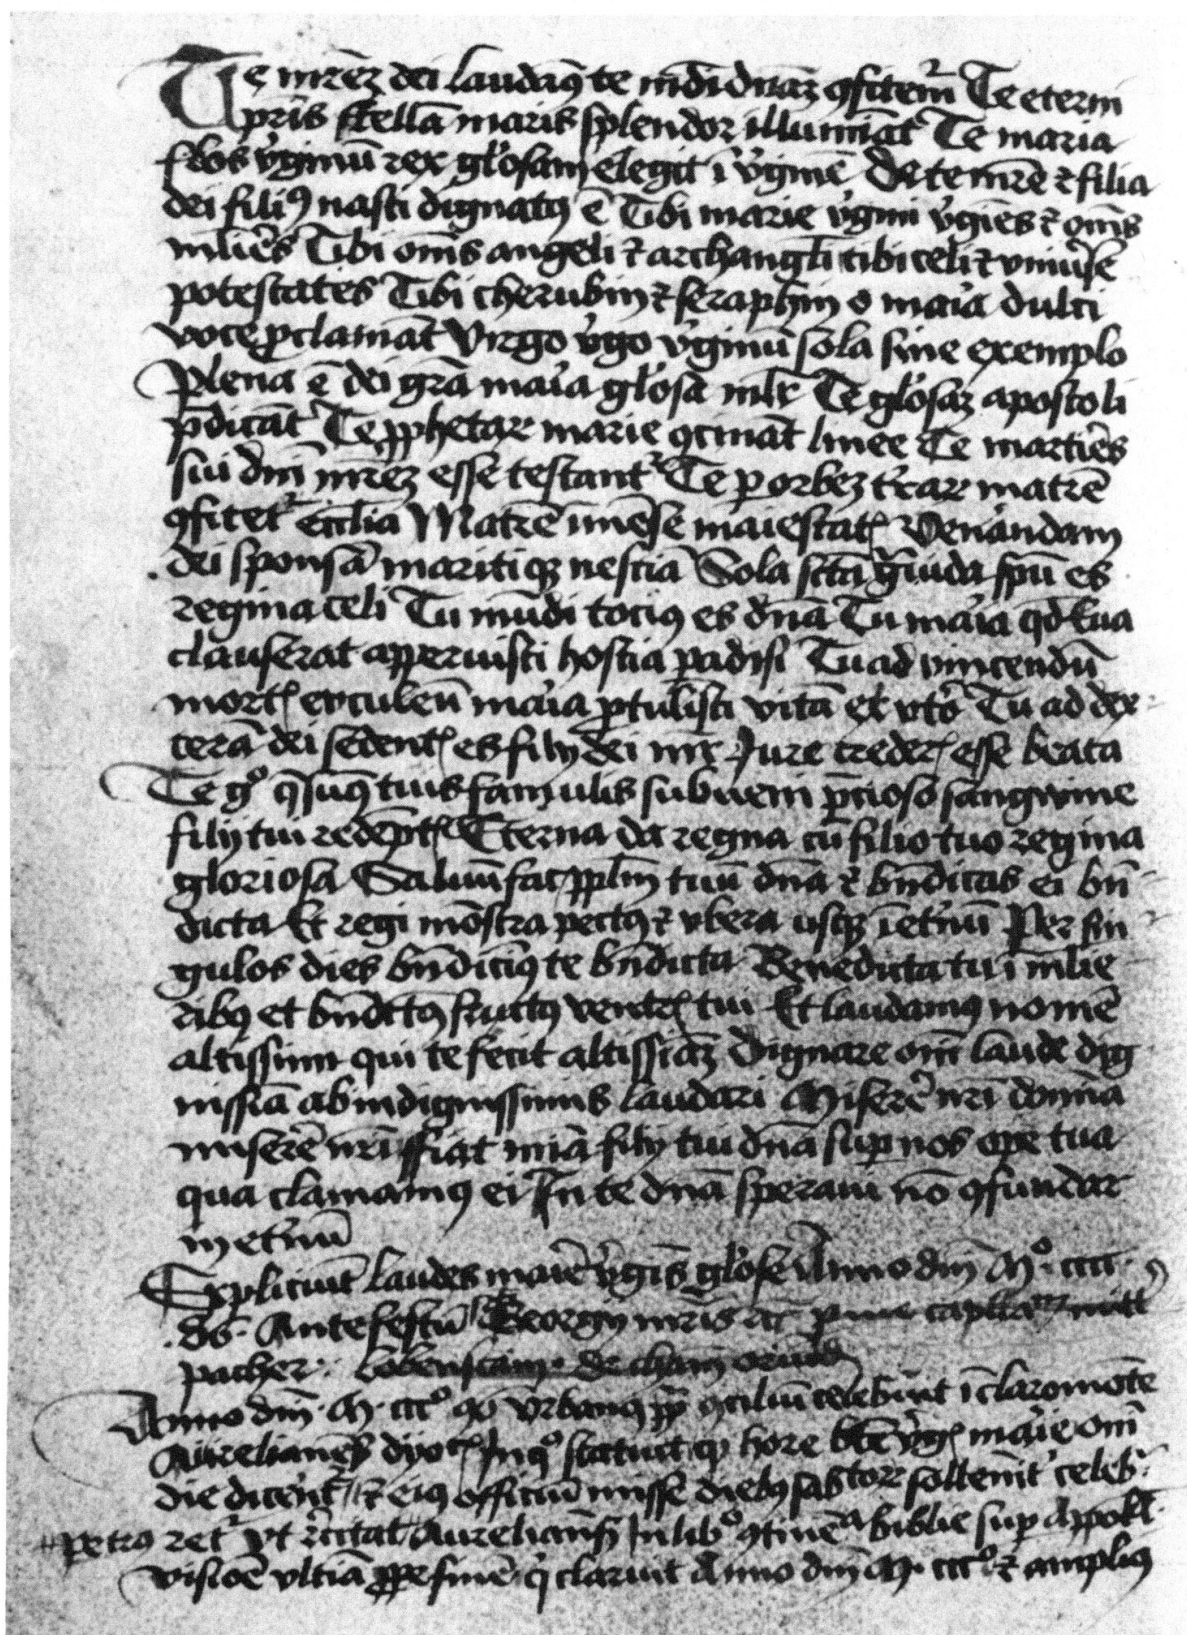 Te mrēz dei laudaꝰ te mōi dnāz ꝯfitem̄ Te eterni
pris̄ stellā maris splendor illuminat Te maria
flos v̓ginū rex gl̓osam elegit ī v̓ginē De te mrē ⁊ filia
dei filiꝰ nasci dignatꝰ ē Tibi marie v̓gini v̓gīes ⁊ om̄s
mlīēs Tibi om̄s angeli ⁊ archangl̄i tibi celi ⁊ vniu̓se
potestates Tibi cherubin ⁊ seraphin o mar̓ia dulci
voce ꝓclamāt Virgo v̓go v̓ginū sola sine exemplo
Plena ē dei grā mar̓ia gl̓osa ml̄r Te gl̓osaz apostoli
p̄dicāt Te ꝓphetaꝝ marie ꝯcināt linee Te martir̓es
sui dnī mrēz esse testant᷑ Te ꝑ orbez tr̓aꝝ matrē
ꝯfitet᷑ eccl̄ia Matrē īmēse maiestatꝭ Ven̓andam
dei sponsā maritiqꝫ nesciā Sola sctā g̓uida spū es
regina celi Tu mūdi tociꝰ es dnā Tu mar̓ia qd̄ Eua
clauserat apperuisti hostia ꝑadisi Tu ad vincendū
mortꝭ mar̓ia ꝓtulisti vitā Tu ad dex
terā dei sedentꝭ es filij dei mr̄ Jure crederꝭ esse beata
Te gͦ q̄sumꝰ tuis famulis subueni p̄cioso sangwine
filij tui redēptꝭ Eterna da regna cū filio tuo regina
gloriosa Saluū fac ppl̄m tuū dnā ⁊ bn̄dicas ei bn̄
dicta Et regi mōstra pectꝰ ⁊ vbera usqꝫ ī et̓nū Per sin
gulos dies bn̄dicimꝰ te bn̄dicta Benedicta tu ī mlie
ribꝰ et bn̄dictꝰ fructꝰ ventrꝭ tui Et laudamꝰ nomē
altissimi qui te fecit altissiāz Dignare om̄i laude dig
nissiā ab indignissimis laudari Miser̓e nr̄i domīa
miser̓e nr̄i ffiat miā filij tui dnā suꝑ nos ope tua
qua clamamꝰ ei In te dnā speraui nō ꝯfundar
in et̓nū
Expliciūt laudes mar̓ie v̓gīs gl̓ose Anno dnī Mͦ cccc
Ante festū Georgij mr̄is
pacher de cham
Anno dnī M cccͦ Vrbanꝰ pp̄ ꝯciliū celebrauit ī claromōte
Aurelianeñ dyocꝭ In qͦ statuit ꝙ hore bt̄e v̓gꝭ mar̓ie om̄i
die dicent᷑ ⁊ eiꝰ officiū misse diebꝰ sabtoꝝ sollennit᷑ celeb᷑
petrus vt r̓citat Aurelianñ In libͦ biblie suꝑ Appoka
visioē vltiā ꝓpe finē q̓ claruit Anno dnī M cccͦ ⁊ ampliꝰ